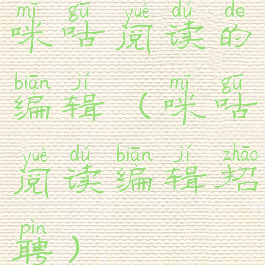 mī gū yuè dú de
咪咕阅读的
biān jí mī gū
编辑（咪咕
yuè dú biān jí zhāo
阅读编辑招
pìn
聘）